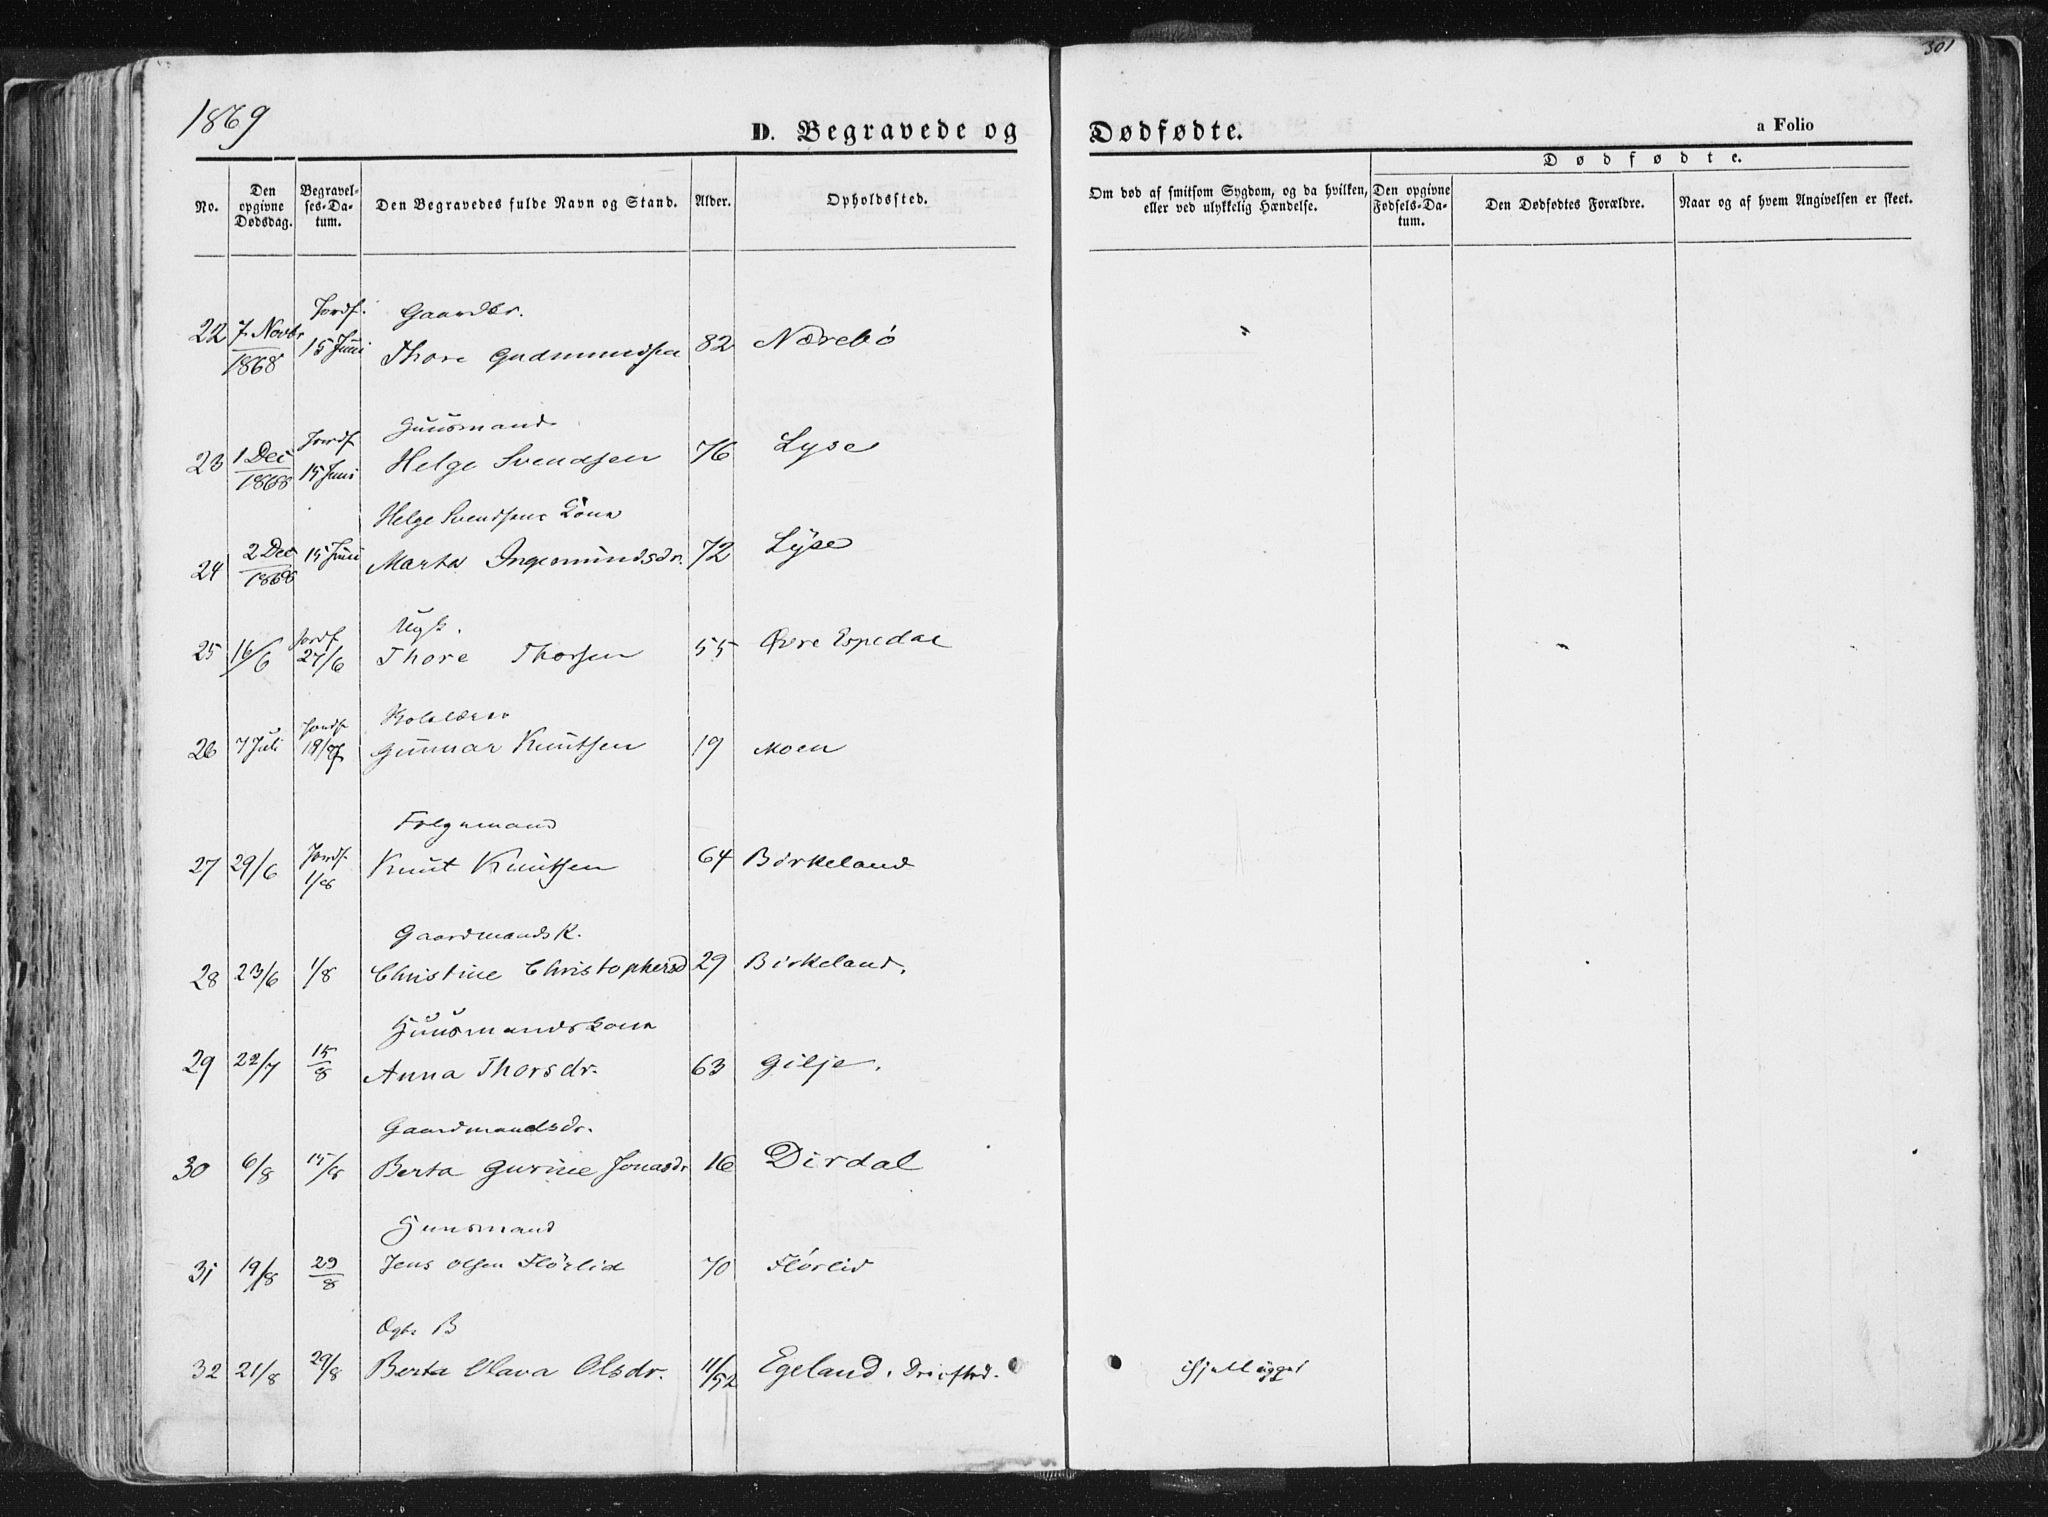 301
1869
D. Begravede og Dødfødte.
a Folio
No.
Den opgivne Dødsdag.
Begravelses-Datum.
Den Begravedes fulde Navn og Stand.
Alder.
Opholdssted.
Om død af smitsom Sygdom, og da hvilken, eller ved ulykkelig Hændelse.
Dødfødte.
Den opgivne Fødsels-Datum.
Den Dødfødtes Forældre.
Naar og af hvem Angivelsen er skeet.
Jordf. Gaardbr.
22 7 Novbr 1868 15 Juni Thore Gudmundsen 82 Nærebö
Jordf Huusmand
23 1 Dec 1868 15 Juni Helge Svendsen 76 Lyse
Helge Svendsens Kone
24 2 Dec 1868 15 Juni Marta Ingemundsdr. 72 Lyse
Jordf Ugk.
25 16/6 27/6 Thore Thorsen 55 Øvre Espedal
Jordf
26 7 Juli 18/7 Gunnar Knutsen 19 Moen
Jordf. Folgemand
27 29/6 1/8 Knut Knutsen 64 Birkeland
Gaardmandsk.
28 23/6 1/8 Christine Christophersd 29 Birkeland.
Huusmandskone
29 22/7 15/8 Anna Thorsdr. 63 Gilje.
Gaardmandsdr.
30 6/8 15/8 Berta Gurine Jonasdr 16 Dirdal
Huusmand
31 19/8 29/8 Jens Olsen Flörlid 70 Flörlid
Ægte B
32 21/8 29/8 Berta Olava Olsdr. 11/52 Egeland.